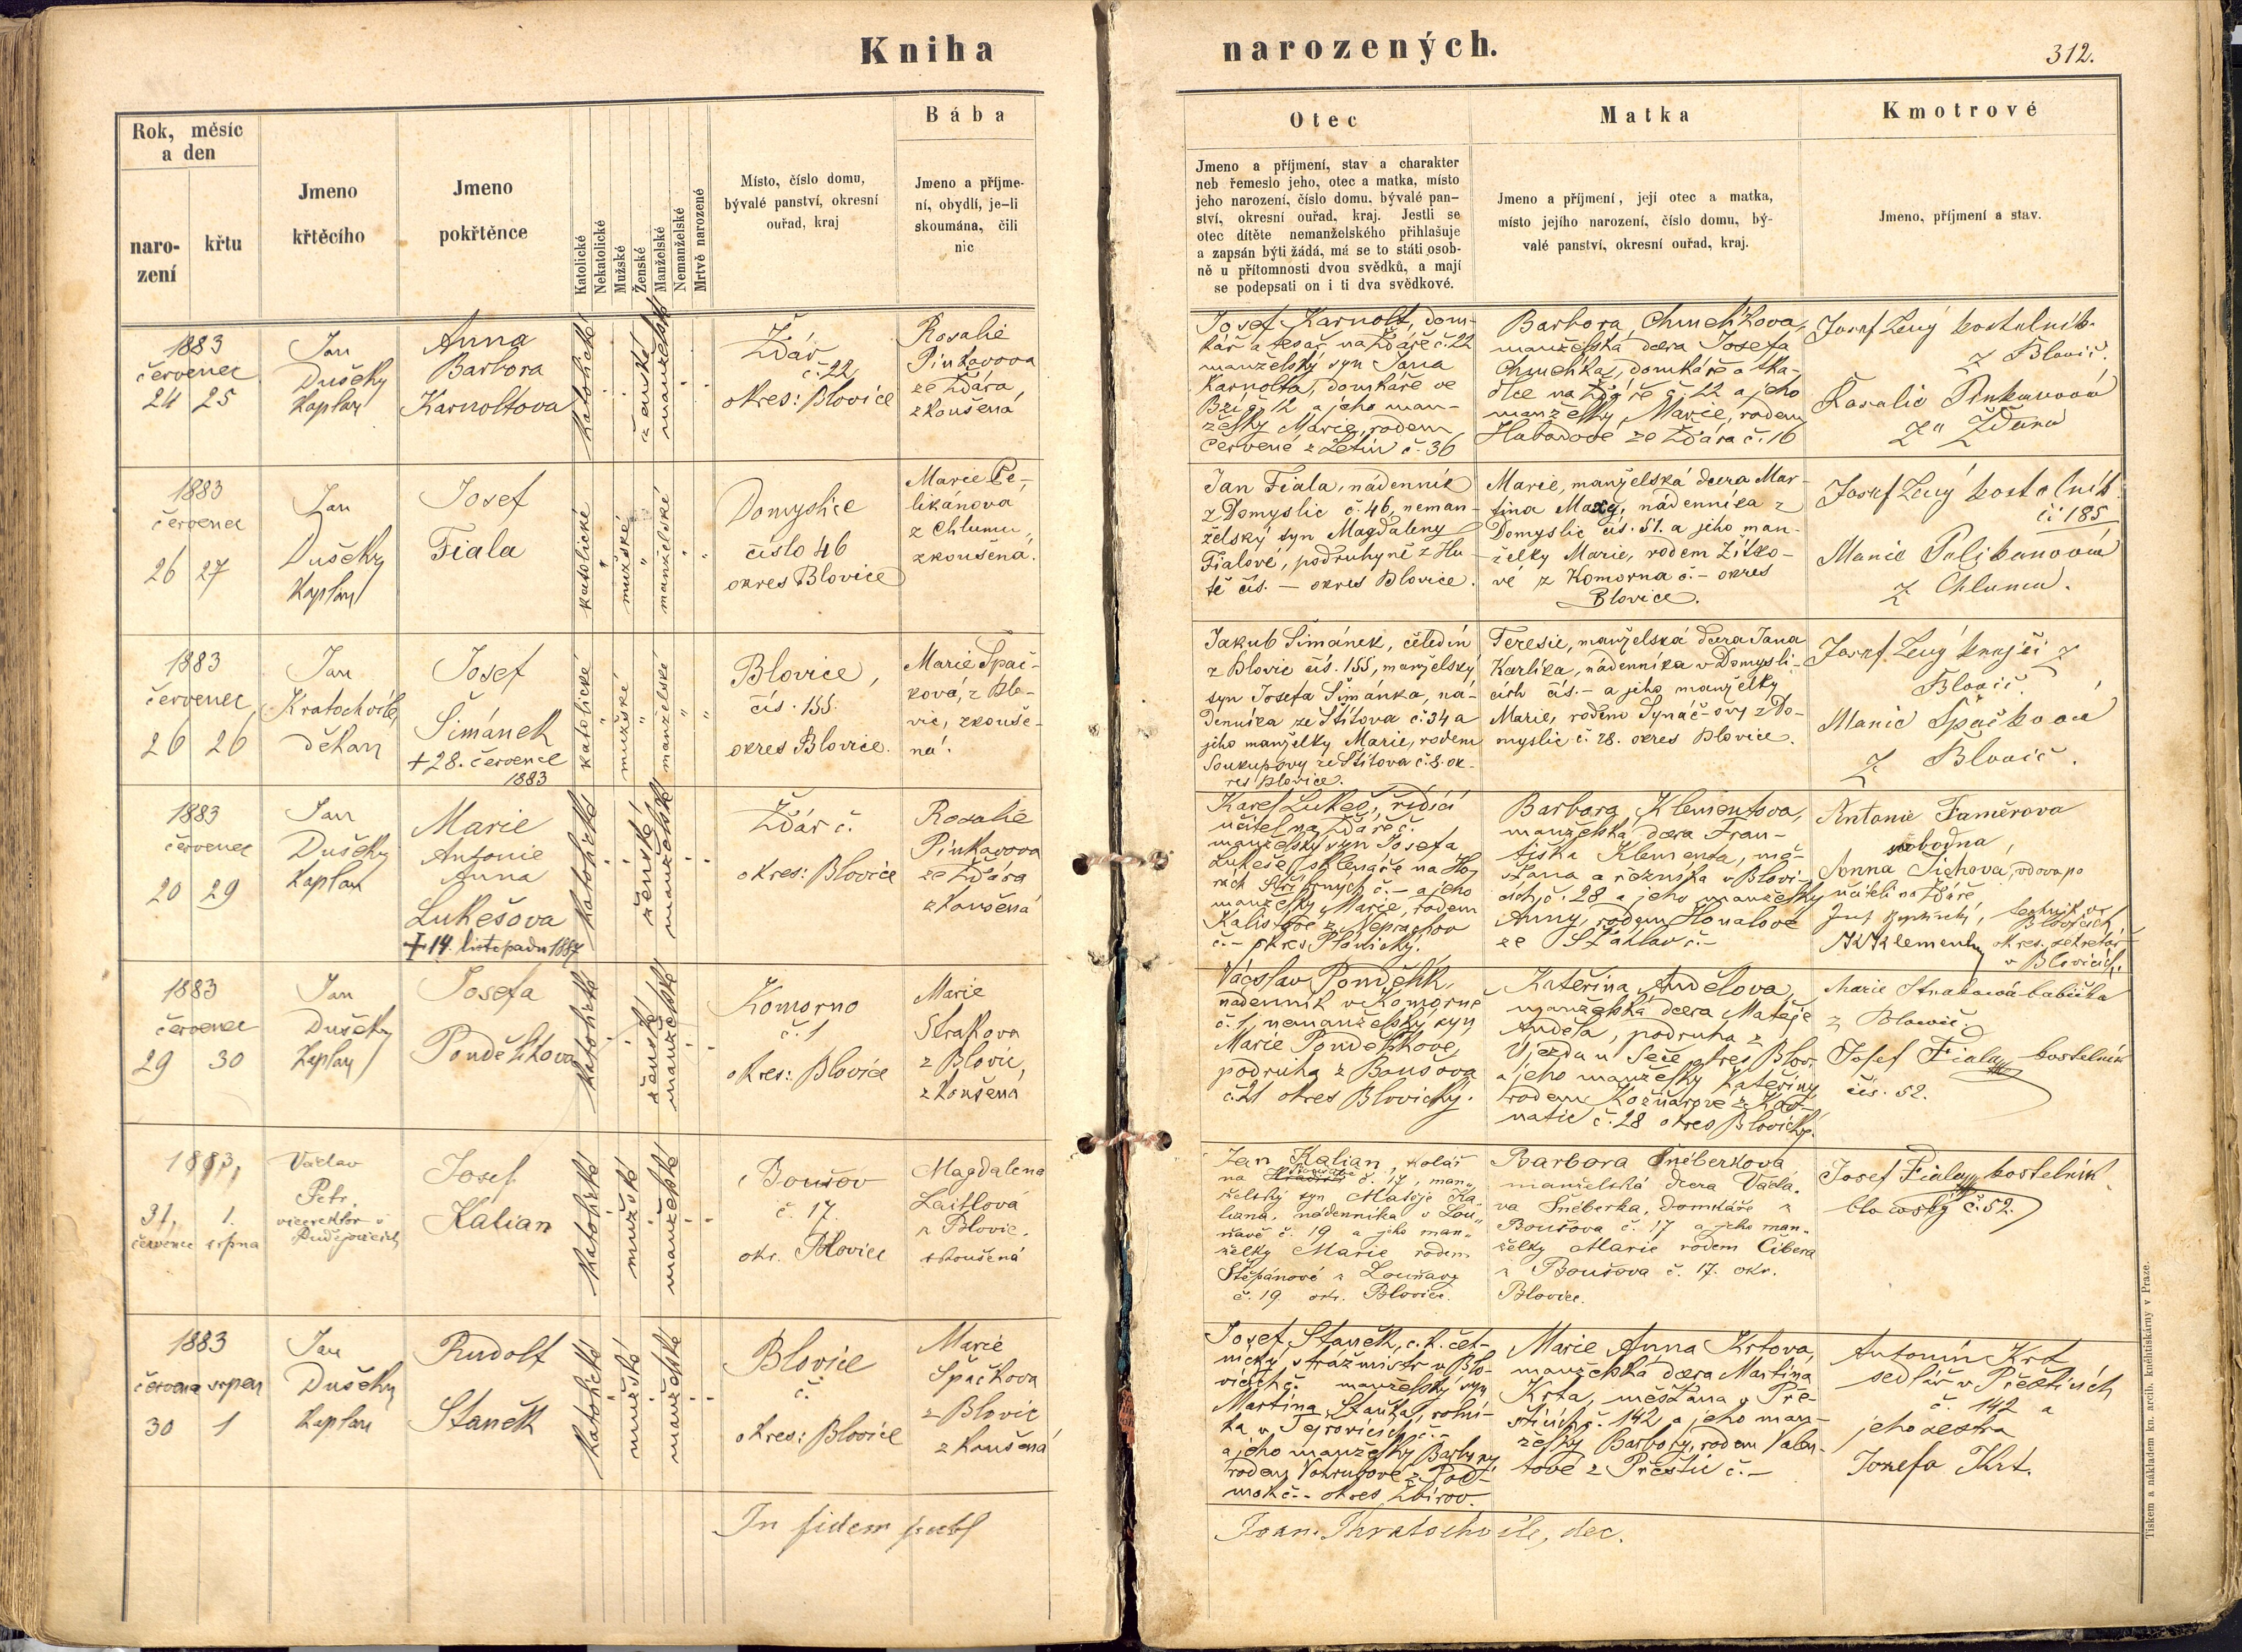 Kniha
narozených.
312.
Rok, měsíc
a den
naro-
zení
křtu
Jmeno
křtěcího
Jmeno
pokřtěnce
Katolické
Nekatolické
Mužské
Ženské
Manželské
Nemanželské
Mrtvě narozené
Místo, číslo domu,
bývalé panství, okresní
ouřad, kraj
Bába
Jmeno a příjme-
ní, obydlí, je-li
skoumána, čili
nic
Otec
Jmeno a příjmení, stav a charakter
neb řemeslo jeho, otec a matka, místo
jeho narození, číslo domu, bývalé pan-
ství, okresní ouřad, kraj. Jestli se
otec dítěte nemanželského přihlašuje
a zapsán býti žádá, má se to státi osob-
ně u přítomnosti dvou svědků, a mají
se podepsati on i ti dva svědkové.
Matka
Jmeno a příjmení, její otec a matka,
místo jejího narození, číslo domu, bý-
valé panství, okresní ouřad, kraj.
Kmotrové
Jmeno, příjmení a stav.
1883
červenec
24 25
Jan
Dušek
kaplan
Anna
Barbora
Karnoltova
katolické
ženské
manželské
Ždár
č. 22
okres: Blovice
Rosalie
Pinkavova
ze Ždára,
zkoušená
Josef Karnolt, dom-
kář a tesař na Ždáře č. 22
manželský syn Jana
Karnolta, domkáře ve
Bzí č. 12 a jeho man-
želky Marie, rodem
Červené z Letin č. 36
Barbora Chmelíkova,
manželská dcera Josefa
Chmelíka, domkáře a tka-
dlce na Ždáře č. 22 a jeho
manželky Marie, rodem
Hubadové ze Ždára č. 16
Josef Lený kostelník
z Blovic.
Rosalie Pinkavová
z Ždára
1883
červenec
26 27
Jan
Dušek
kaplan
Josef
Fiala
katolické
mužské
manželské
Domyslice
číslo 46
okres Blovice
Marie Pe-
likánova
z Chlumu,
zkoušená.
Jan Fiala, nádenník
z Domyslic č. 46, neman-
želský syn Magdaleny
Fialové, podruhyně z Hu-
tě čís. — okres Blovice.
Marie, manželská dcera Mar-
tina Maxy, nádenníka z
Domyslic čís. 51. a jeho man-
želky Marie, rodem Žitko-
vé z Komorna č. - okres
Blovice.
Josef Lený kostelník
č. 185
Marie Pelikanová
z Chlumu.
1883
červenec
26 26
Jan
Kratochvíle,
děkan
Josef
Šimánek
+ 28. července
1883
katolické
mužské
manželské
Blovice,
čís. 155.
okres Blovice.
Marie Špač-
ková, z Blo-
vic, zkouše-
ná.
Jakub Šimánek, čeledín
z Blovic čís. 155, manželský
syn Josefa Šimánka, ná-
denníka ze Štítova č. 34 a
jeho manželky Marie, rodem
Soukupovy ze Štítova č. 8. ok-
res Blovice.
Teresie, manželská dcera Jana
Karlíka, nádenníka v Domysli-
cích čís. - a jeho manželky
Marie, rodem Synáč-ovy z Do-
myslic č. 28. okres Blovice.
Josef Lený z
Blovic
Marie Špačková
z Blovic.
1883
červenec
20 29
Jan
Dušek
kaplan
Marie
Antonie
Anna
Lukešova
+ 14. listopadu 1887
katolické
ženské
manželské
Ždár č.
okres: Blovice
Rosalie
Pinkavova
ze Ždára
zkoušená
Karel Lukeš, řídící
učitel na Ždáře č.
manželský syn Josefa
Lukeše, sklenáře na Ho-
rách Stříbrných č. - a jeho
manželky Marie, rodem
Kalistové z Neprachov
č. - okres Plánický.
Barbora Klementova,
manželská dcera Fran-
tiška Klementa, mě-
šťana a řezníka v Blovi-
cích č. 28 a jeho manželky
Anny, rodem Honalové
ze Šťáhlav č. -
Antonie Faměrova
svobodna,
Anna Tichova, vdova po
učiteli na Ždáře
Blovicích
Klement okres. sekretář
v Blovicích.
1883
červenec
29 30
Jan
Dušek
kaplan
Josefa
Pondělíkova
katolické
ženské
manželské
Komorno
č. 1
okres: Blovice
Marie
Strakova
z Blovic,
zkoušená
Václav Pondělík,
nádenník v Komorně
č. 1, nemanželský syn
Marie Pondělíkové,
podruha z Boušova
č. 21 okres Blovický.
Kateřina Andělova,
manželská dcera Matěje
Anděla, podruha z
Újezda u okres Blov.
a jeho manželky Kateřiny
rodem Kožnarové z Kot-
natic č. 28 okres Blovický.
Marie Straková babička
z Blovic
Josef Fiala kostelník
čís. 52.
1883,
31, 1.
červenec srpna
Václav
Petr,
vicerektor v
Budějovicích
Josef
Kalian
katolické
mužské
manželské
Boušov
č. 17.
okr. Blovice
Magdalena
Laitlová
z Blovic.
zkoušená
Jan Kalian, kolář
na Boušově č. 17, man-
želský syn Matěje Ka-
liana, nádenníka v Lou-
ňavě č. 19 a jeho man-
želky Marie rodem
Štěpánové z Louňavy
č. 19 okr. Blovice.
Barbora Šneberkova
manželská dcera Václa-
va Šneberka, domkáře z
Boušova č. 17 a jeho man-
želky Marie rodem Cibera
z Boušova č. 17. okr.
Blovice.
Josef Fiala kostelník
blovický č. 52.
1883
července srpen
30 1
Jan
Dušek
kaplan
Rudolf
Staněk
katolické
mužské
manželské
Blovice
č.
okres: Blovice
Marie
Špačkova
z Blovic
zkoušená
Josef Staněk, c. k. čet-
nický strážmistr v Blo-
vicích č. manželský syn
Martina Staňka, rolní-
ka v Tejrovicích č. -
a jeho manželky Barbory
rodem Vohrutové z Pod-
mok č. - okres Zbirov.
Marie Anna Krtova,
manželská dcera Martina
Krta, měšťana v Pře-
šticích č. 142 a jeho man-
želky Barbory, rodem Valen-
tové z Přeštic č. -
Antonín Krt
sedlář v Přešticích
č. 142 a
jeho sestra
Josefa Krt.
In fidem
Joan. Kratochvíle, dec.
Tiskem a nákladem kn. arcib. knihtiskárny v Praze.